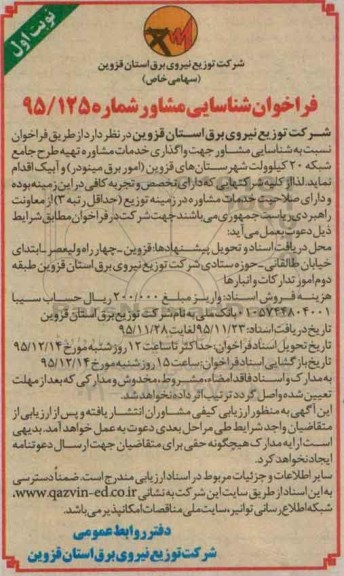 نوبت اول
شرکت توزیع نیروی برق استان قزوین
(سهامی خاص)
فراخوان شناسایی مشاور شماره ۹۵/۱۲۵
شرکت توزیع نیروی برق استان قزوین در نظر دارد از طریق فراخوان
نسبت به شناسایی مشاور جهت واگذاری خدمات مشاوره تهیه طرح جامع
شبکه ۲۰ کیلوولت شهرستان‌های قزوین (امور برق مینودر) و آبیک اقدام
نماید. لذا از کلیه شرکتهایی که دارای تخصص و تجربه کافی در این زمینه بوده
و دارای صلاحیت خدمات مشاوره در زمینه توزیع (حداقل رتبه ۳) از معاونت
راهبردی ریاست جمهوری می‌باشند جهت شرکت در فراخوان مطابق شرایط
ذیل دعوت بعمل می‌آید:
محل دریافت اسناد و تحویل پیشنهادها: قزوین - چهارراه ولیعصر - ابتدای
خیابان طالقانی - حوزه ستادی شرکت توزیع نیروی برق استان قزوین طبقه
دوم امور تدارکات و انبارها
هزینه فروش اسناد: واریز مبلغ ۲۰۰/۰۰۰ ریال حساب سیبا
۰۱۰۵۷۴۴۸۰۴۰۰۱ بانک ملی به نام شرکت توزیع برق استان قزوین
تاریخ دریافت اسناد: ۹۵/۱۱/۲۳ لغایت ۹۵/۱۱/۲۸
تاریخ تحویل اسناد فراخوان: حداکثر تا ساعت ۱۲ روز شنبه مورخ ۹۵/۱۲/۱۴
تاریخ بازگشایی اسناد فراخوان: ساعت ۱۵ روز شنبه مورخ ۹۵/۱۲/۱۴
به مدارک و اسناد فاقد امضاء، مشروط، مخدوش و مدارکی که بعد از مهلت
تعیین شده واصل گردد ترتیب اثر داده نخواهد شد.
این آگهی به منظور ارزیابی کیفی مشاوران انتشار یافته و پس از ارزیابی از
متقاضیان واجد شرایط طی مراحل بعدی دعوت به عمل خواهد آمد. بدیهی
است ارایه مدارک هیچگونه حقی برای متقاضیان جهت ارسال دعوتنامه
ایجاد نخواهد کرد.
سایر اطلاعات و جزئیات مربوط در اسناد ارزیابی مندرج است. ضمناً دسترسی
به این اسناد از طریق سایت این شرکت به نشانی www.qazvin-ed.co.ir،
شبکه اطلاع رسانی توانیر، سایت ملی مناقصات امکانپذیر می‌باشد.
دفتر روابط عمومی
شرکت توزیع نیروی برق استان قزوین